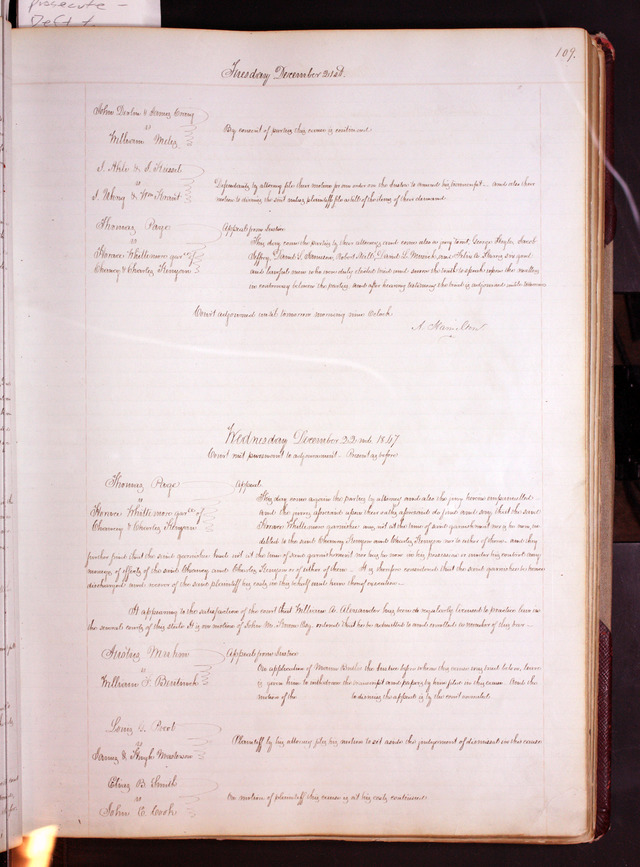 prosecute -
Deft
109.
Tuesday December 21st.
John Devlin & James Craig
vs
William Miles
By consent of parties this cause is continued
vs
Defendants by attorney file their motion for an order on the Justice to amend his transcript - and also their
motion to dismiss the suit unless plaintiffs file a bill of the items of their demand
Thomas Page
vs
Horace Whittemore garee of
Chancy & Charles Kenyon
Appeal from Justice
This day come the parties by their attorneys and come also a jury to wit, George Hayle, Jacob
and lawful men who were duly elected tried and sworn the truth to speak upon the matters
in controversy between the parties and after hearing testimony the trial is adjourned until tomorrow
Court adjourned until tomorrow morning nine Oclock
A. Hamilton
Wednesday December 22nd. 1847
Court met pursuant to adjournment - Present as before
Thomas Page
vs
Horace Whittemore garee of
Chancy & Charles Kenyon
Appeal
This day come again the parties by attorney and also the jury herein empannelled
and the jurors aforesaid upon their oaths aforesaid do find and say that the said
Horace Whittemore garnishee was not at the time of said garnishment nor is he now in-
debted to the said Chancy Kenyon and Charles Kenyon nor to either of them and they
further find that the said garnishee had not at the time of said garnishment nor has he now in his possession or under his control any
money, or effects of the said Chancy and Charles Kenyon or of either of them - It is therefore considered that the said garnishee be hence
discharged and recover of the said plaintiff his costs in this behalf and have thereof execution -
It appearing to the satisfaction of the court that William A. Alexander has been regularly licensed to practice law in
the several courts of this state It is on motion of ordered that he be admitted to and enrolled a member of this bar -
vs
William F.
Appeal from Justice
On application of the Justice before whom this cause was tried below, leave
is given him to withdraw the transcript and papers by him filed in this cause And the
motion of the to dismiss the appeal is by the court overruled
vs
James & Hugh
Plaintiff by his attorney files his motion to set aside the judgement of dismissal in this cause
B Smith
vs
John C. Cook
On motion of plaintiff this cause is at his costs continued